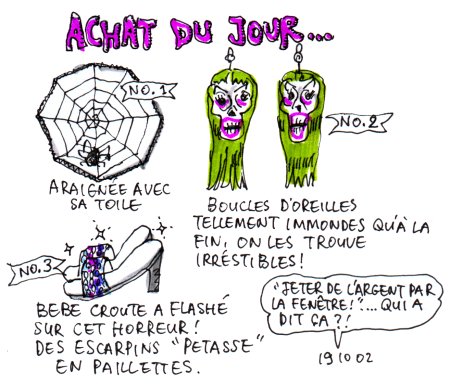 ACHAT DU JOUR...
NO.1
ARAIGNÉE AVEC
SA TOILE
NO.2
BOUCLES D'OREILLES
TELLEMENT IMMONDES QU'À LA
FIN, ON LES TROUVE
IRRÉSTIBLES!
NO.3
BEBE CROUTE A FLASHÉ
SUR CET HORREUR!
DES ESCARPINS "PETASSE"
EN PAILLETTES.
"JETER DE L'ARGENT PAR
LA FENÊTRE!"... QUI A
DIT ÇA?!
19 10 02